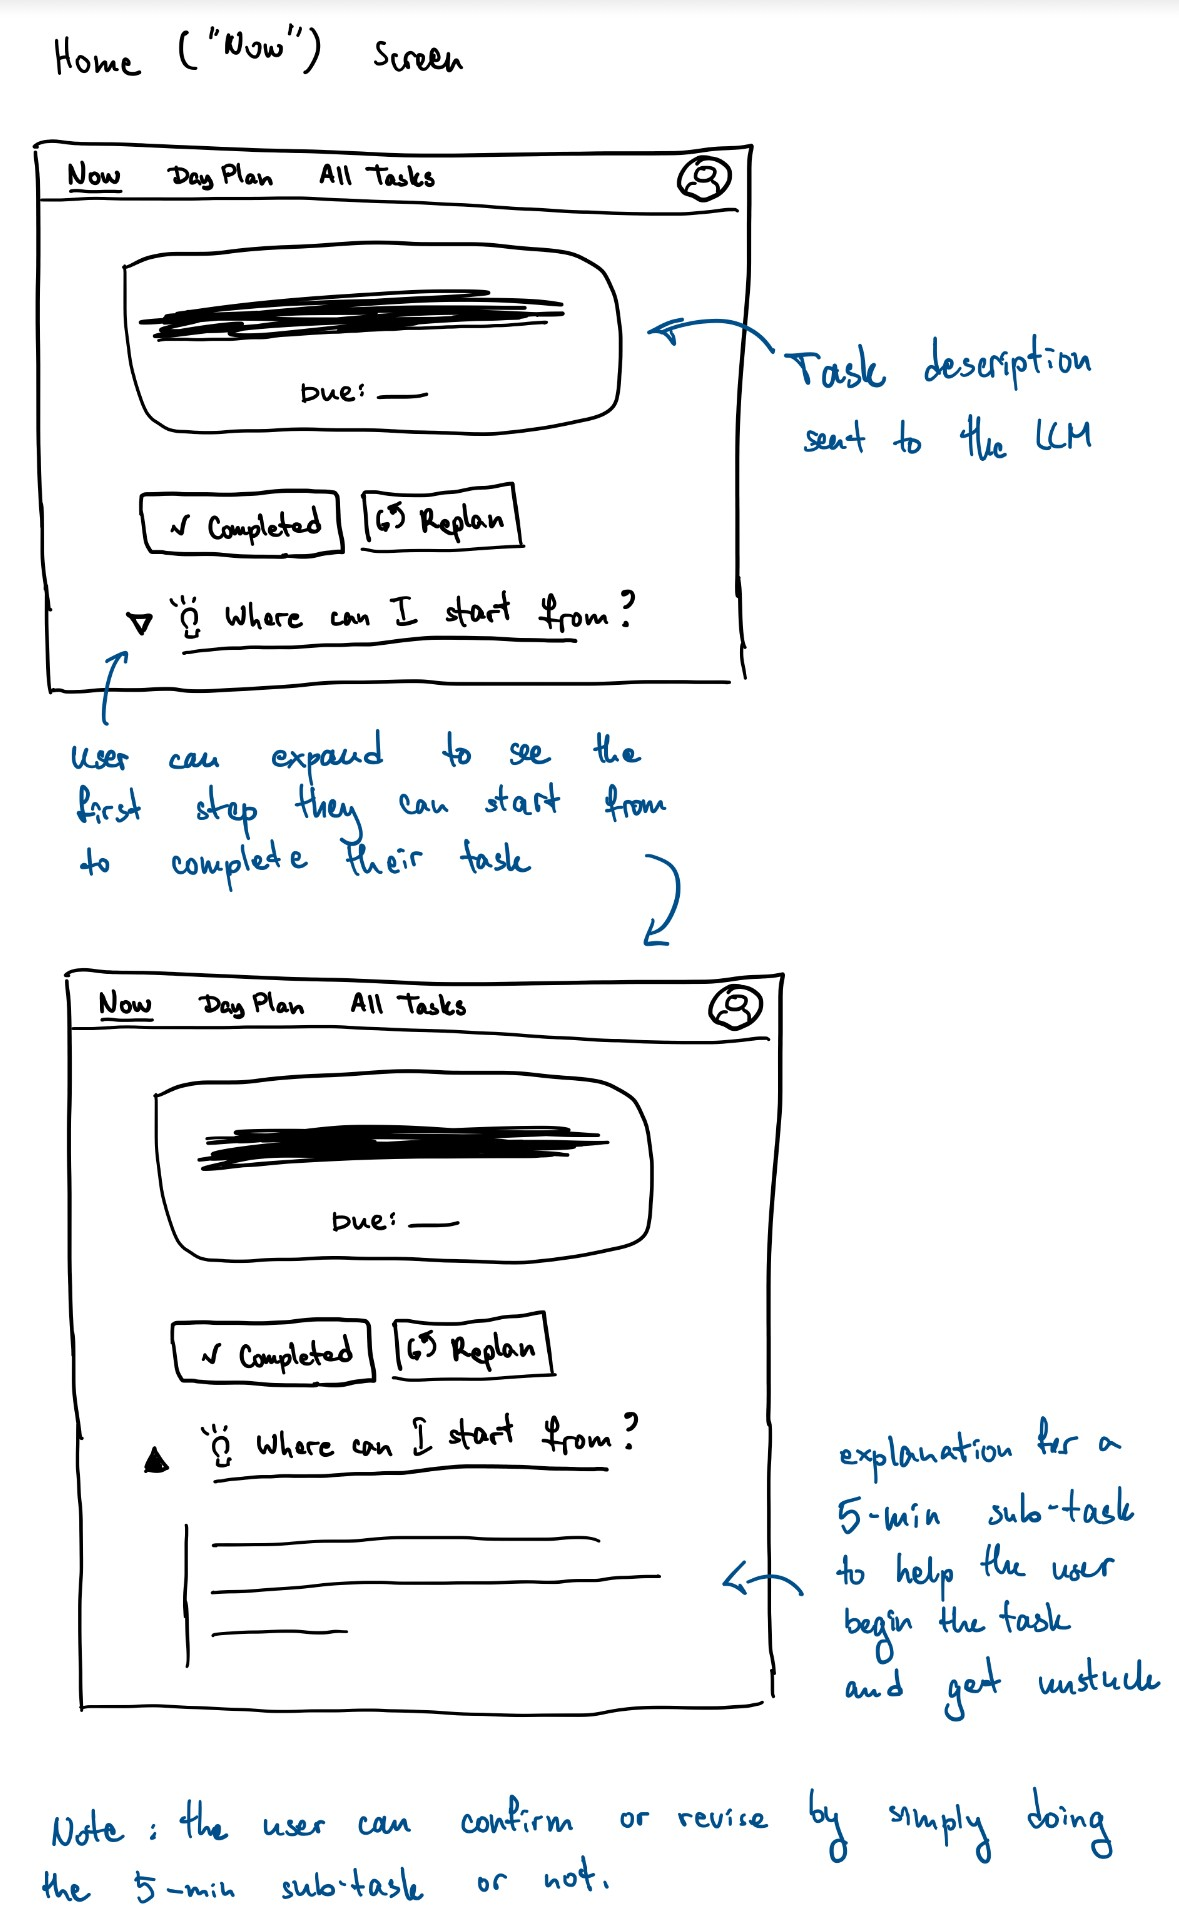 Home ("Now") Screen
Now Day Plan All Tasks
Due:
Task description
sent to the LLM
✓ Completed
Replan
Where can I start from?
User can expand to see the
first step they can start from
to complete their task
Now Day Plan All Tasks
Due:
✓ Completed
Replan
Where can I start from?
explanation for a
5-min sub-task
to help the user
begin the task
and get unstuck
Note: the user can confirm or revise by simply doing
the 5-min sub-task or not.